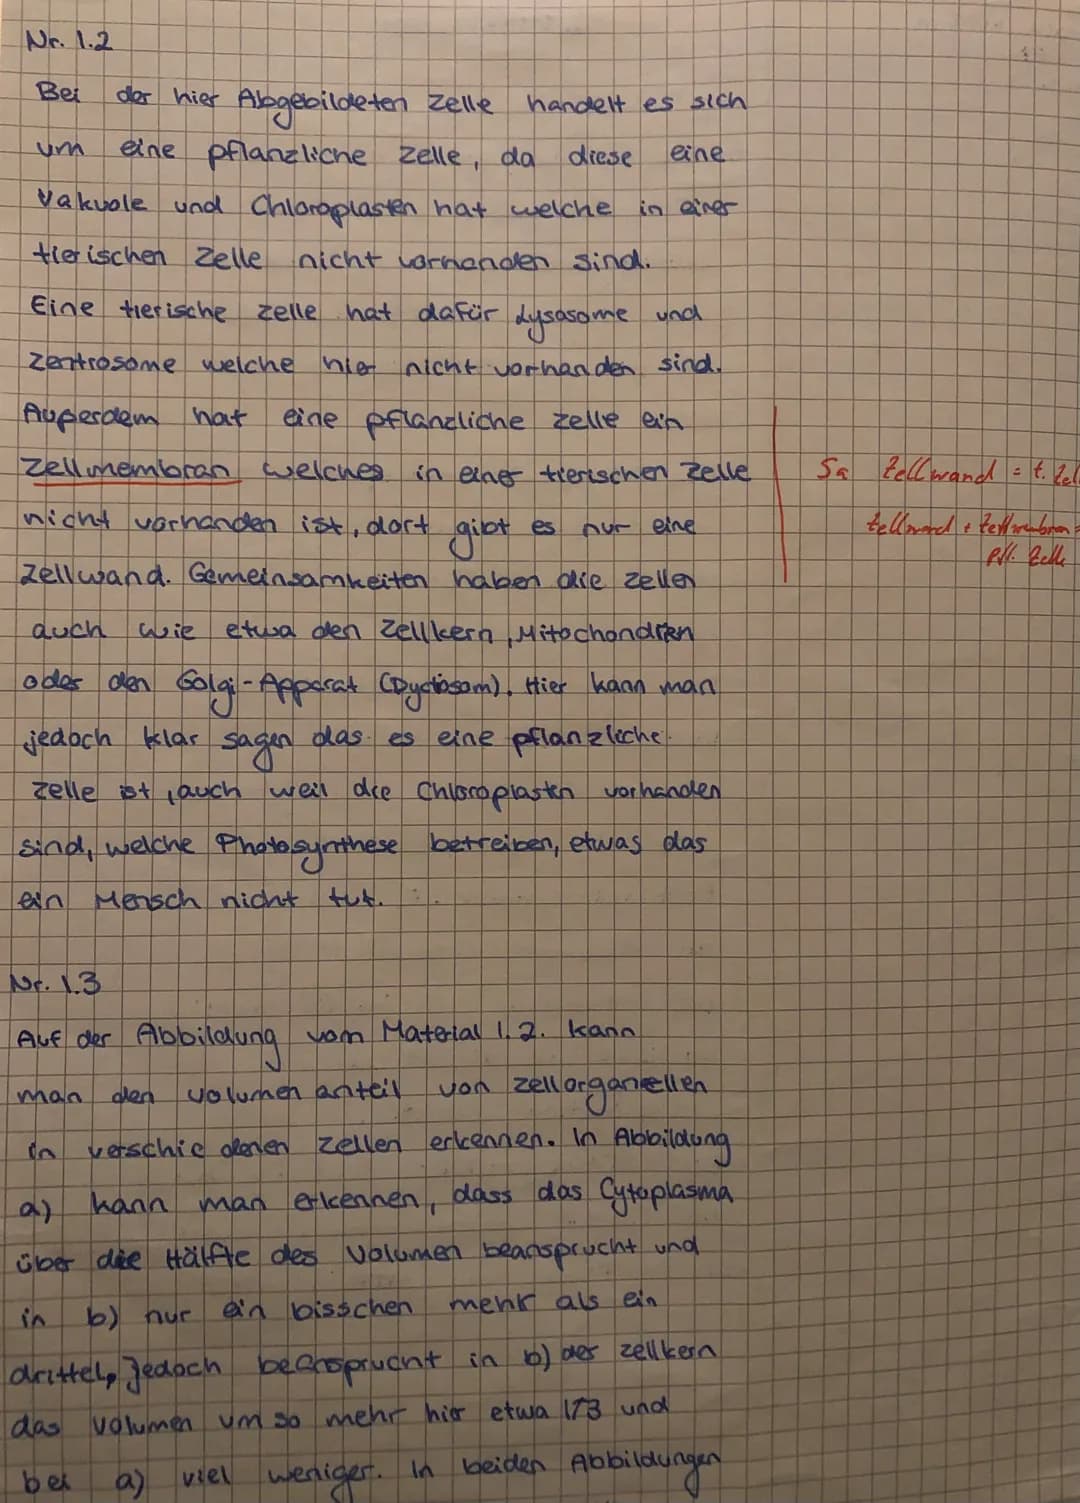 Nr. 1.2
Bei der hier Abgebildeten Zelle handelt es sich
um eine pflanzliche Zelle, da diese eine
Vakuole und Chloroplasten hat welche in einer
tierischen Zelle nicht vorhanden sind.
Eine tierische Zelle hat dafür Lysosome und
Zentrosome welche hier nicht vorhanden sind.
Außerdem hat eine pflanzliche Zelle ein
Zellmembran welches in einer tierischen Zelle
Sa Zellwand = t. Zel
nicht vorhanden ist, dort gibt es nur eine
Zellwand + Zellmembran =
Zellwand. Gemeinsamkeiten haben die Zellen
pfl. Zelle
auch wie etwa den Zellkern, Mitochondrien
oder den Golgi-Apparat (Dyctiosom). Hier kann man
jedoch klar sagen das es eine pflanzliche
Zelle ist, auch weil die Chloroplasten vorhanden
sind, welche Photosynthese betreiben, etwas das
ein Mensch nicht tut.
Nr. 1.3
Auf der Abbildung vom Material 1.2. kann
man den Volumen anteil von Zellorganellen
in verschiedenen Zellen erkennen. In Abbildung
a) kann man erkennen, dass das Cytoplasma
über die Hälfte des Volumen beansprucht und
in b) nur ein bisschen mehr als ein
drittel, Jedoch beansprucht in b) der Zellkern
das Volumen um so mehr hier etwa 1/3 und
bei a) viel weniger. In beiden Abbildungen